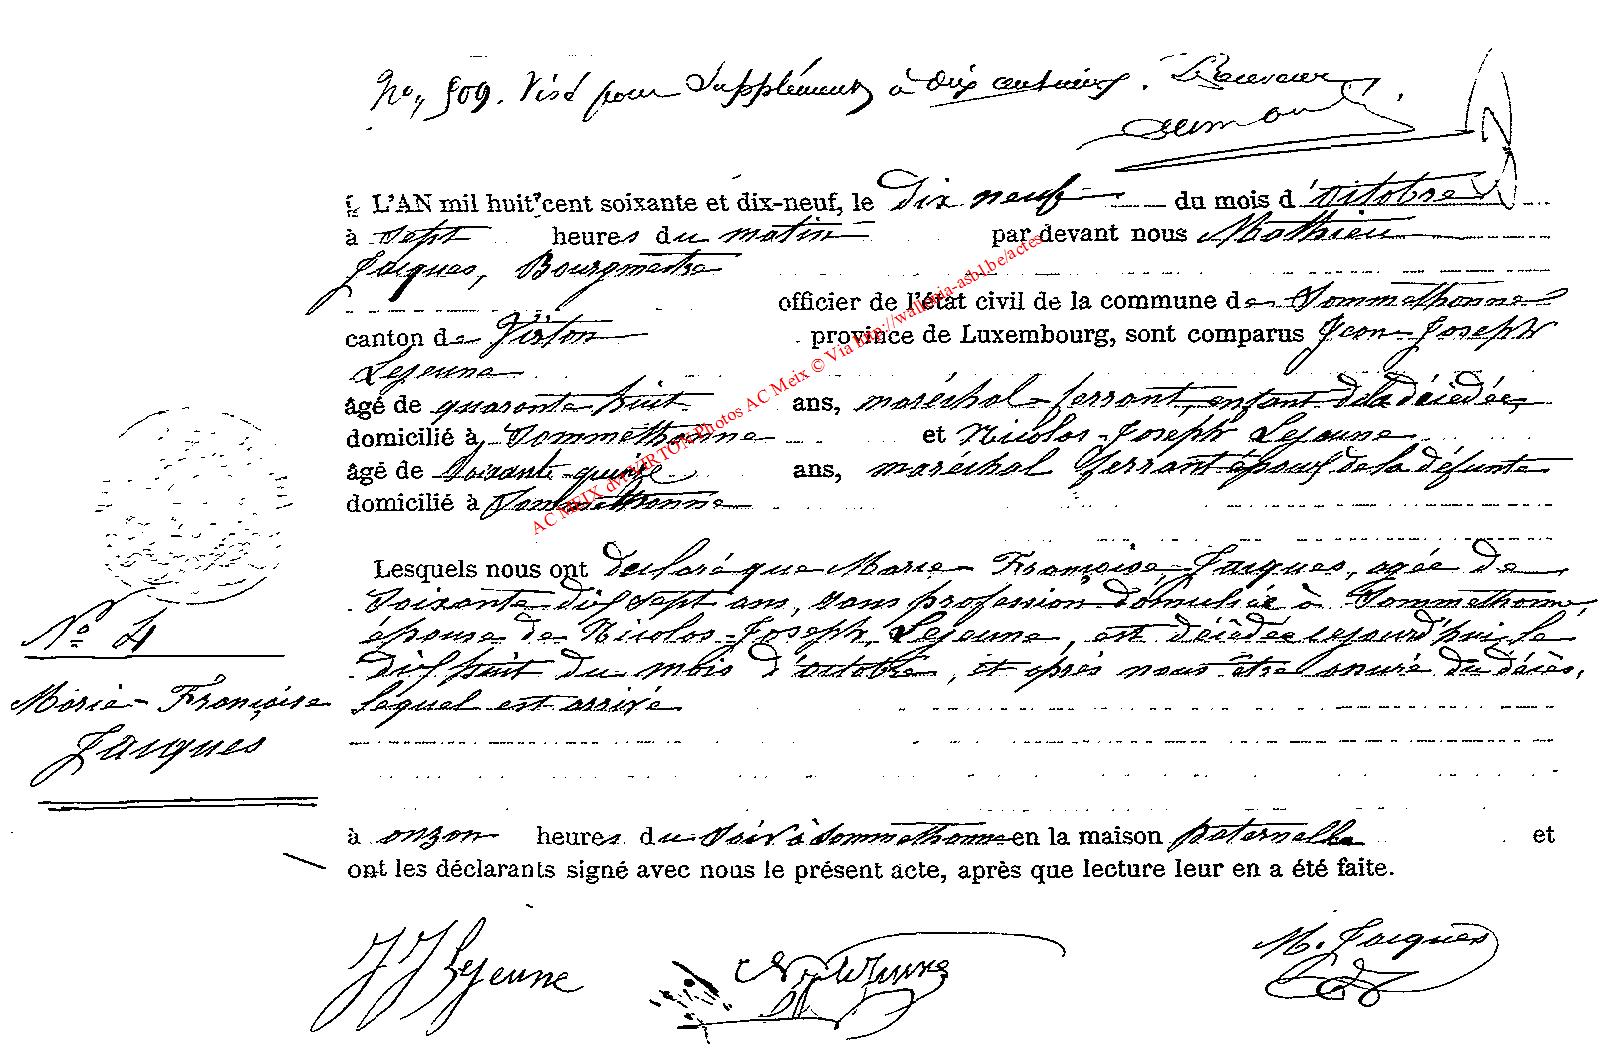 No, 509. Visé pour Supplément à dix centimes. Le Receveur
L'AN mil huit cent soixante et dix-neuf, le dix neuf du mois d'octobre
à Sept heures du matin par devant nous Mathieu
Jacques, Bourgmestre
officier de l'état civil de la commune de Sommethonne
canton de Virton province de Luxembourg, sont comparus Jean-Joseph
Lejeune
âgé de quarante huit ans, maréchal-ferrant, enfant de la décédée,
domicilié à Sommethonne et Nicolas-Joseph Lejeune
âgé de Soixante-quinze ans, maréchal ferrant époux de la défunte
domicilié à Sommethonne
Lesquels nous ont déclaré que Marie-Françoise Jacques, agée de
Soixante dix sept ans, sans profession domiciliée à Sommethonne,
épouse de Nicolas-Joseph Lejeune, est décédée cejourd'hui, le
dix huit du mois d'octobre, et après nous être assuré du décès,
lequel est arrivé
N° 4
Marie-Françoise
Jacques
à onze heures du Soir à Sommethonne en la maison paternelle et
ont les déclarants signé avec nous le présent acte, après que lecture leur en a été faite.
JJ Lejeune M. Jacques
AC MEIX dvt VIRTON Photos AC Meix © Via http://wallonia-asbl.be/actes